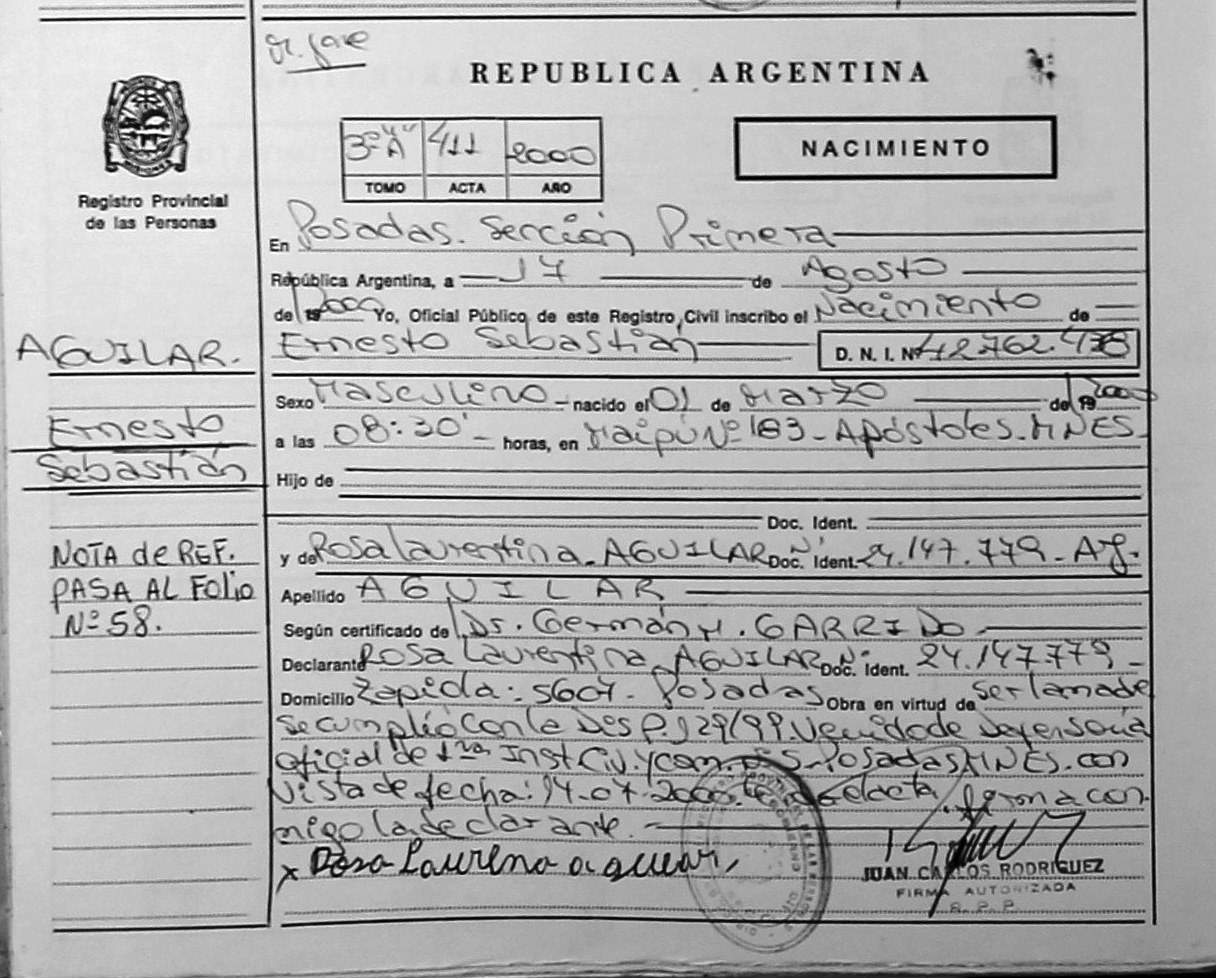 REPUBLICA ARGENTINA
3º "A" 411 2000
TOMO ACTA AÑO
NACIMIENTO
Registro Provincial
de las Personas
En Posadas. Sección Primera
República Argentina, a 17 de Agosto
de 2000 Yo, Oficial Público de este Registro Civil inscribo el Nacimiento de
Ernesto Sebastián D. N. I. Nº 42.762.438
Sexo Masculino nacido el 01 de Marzo de 2000
a las 08:30' horas, en Maipú Nº 183 - Apóstoles. MNES
Hijo de
Doc. Ident.
y de Rosa Laurentina. AGUILAR Doc. Ident. Nº 24.147.779 - Arg.
Apellido AGUILAR
Según certificado de Dr. Germán M. GARRIDO
Declarante Rosa Laurentina AGUILAR Doc. Ident. Nº 24.147.779 -
Domicilio Zapiola: 5604. Posadas Obra en virtud de Ser la madre
Se cumplió con la Desp. 129/99. Venido de Defensoría
oficial de 1ra. Inst. Civ. y Com. Posadas MNES. con
Vista de fecha: 14.07.2000. firma con
migo la declarante.
x Rosa Laurena aguear
JUAN CARLOS RODRIGUEZ
FIRMA AUTORIZADA
R. P. P.
AGUILAR.
Ernesto
Sebastián
NOTA de REF.
PASA AL FOLIO
Nº 58.